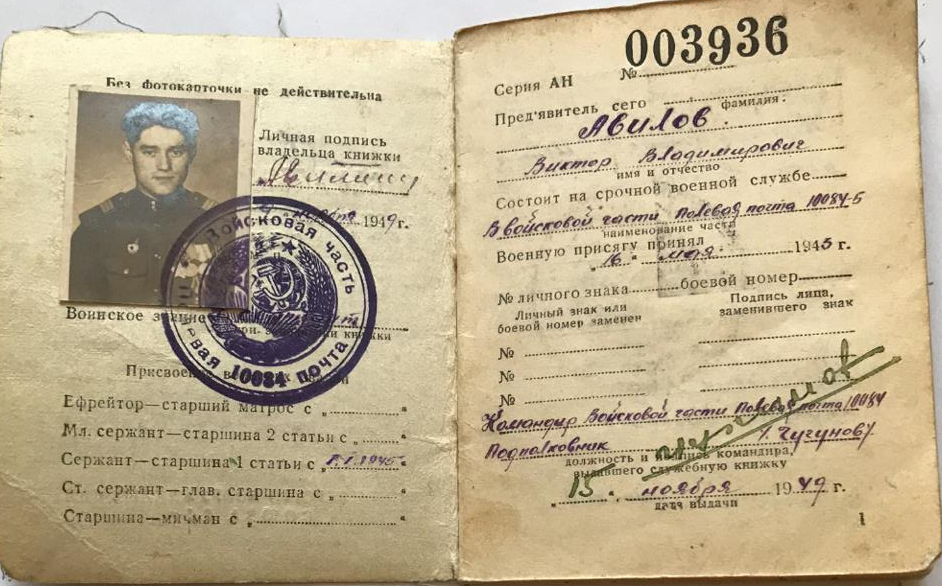 Без фотокарточки не действительна
Личная подпись
владельца книжки
1949 г.
Войсковая часть
10084 почта
Воинское
книжки
Ефрейтор—старший матрос с „ “
Мл. сержант—старшина 2 статьи с „ “
Сержант—старшина 1 статьи с „ 1945 “
Ст. сержант—глав. старшина с „ “
Старшина—мичман с „ “
003936
Серия АН №
Пред'явитель сего
фамилия:
Авилов
Виктор Владимирович
имя и отчество
Состоит на срочной военной службе
В войсковой части Полевая почта 10084-Б
наименование части
Военную присягу принял
„16“ мая 1945 г.
№ личного знака боевой номер
Личный знак или
боевой номер заменен
Подпись лица,
заменившего знак
№
№
№
Командир Войсковой части Полевая почта 10084
Подполковник Чугунов
должность и подпись командира,
выдавшего служебную книжку
15 „ ноября 1949 г.
дата выдачи
1